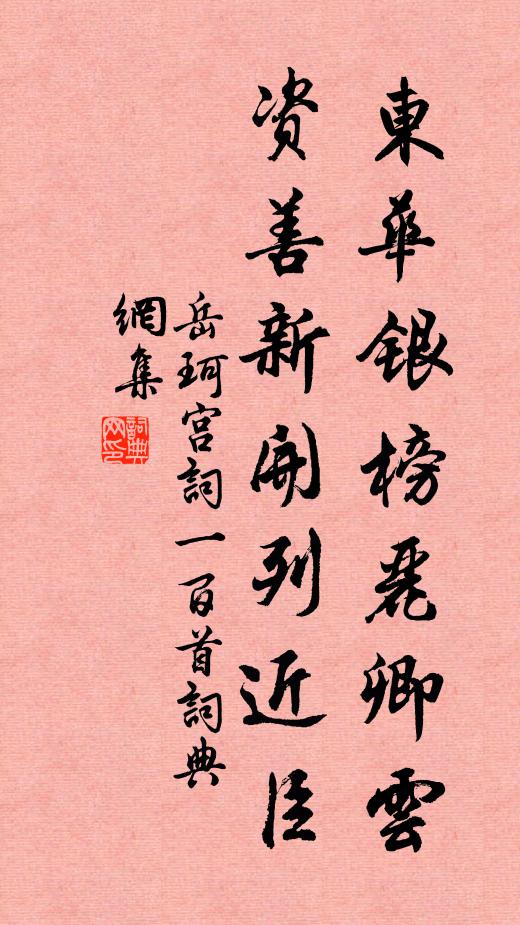 東華銀榜麗卿雲
资善新開列近臣
岳珂宫詞一百首詞典
網集
詞典网印